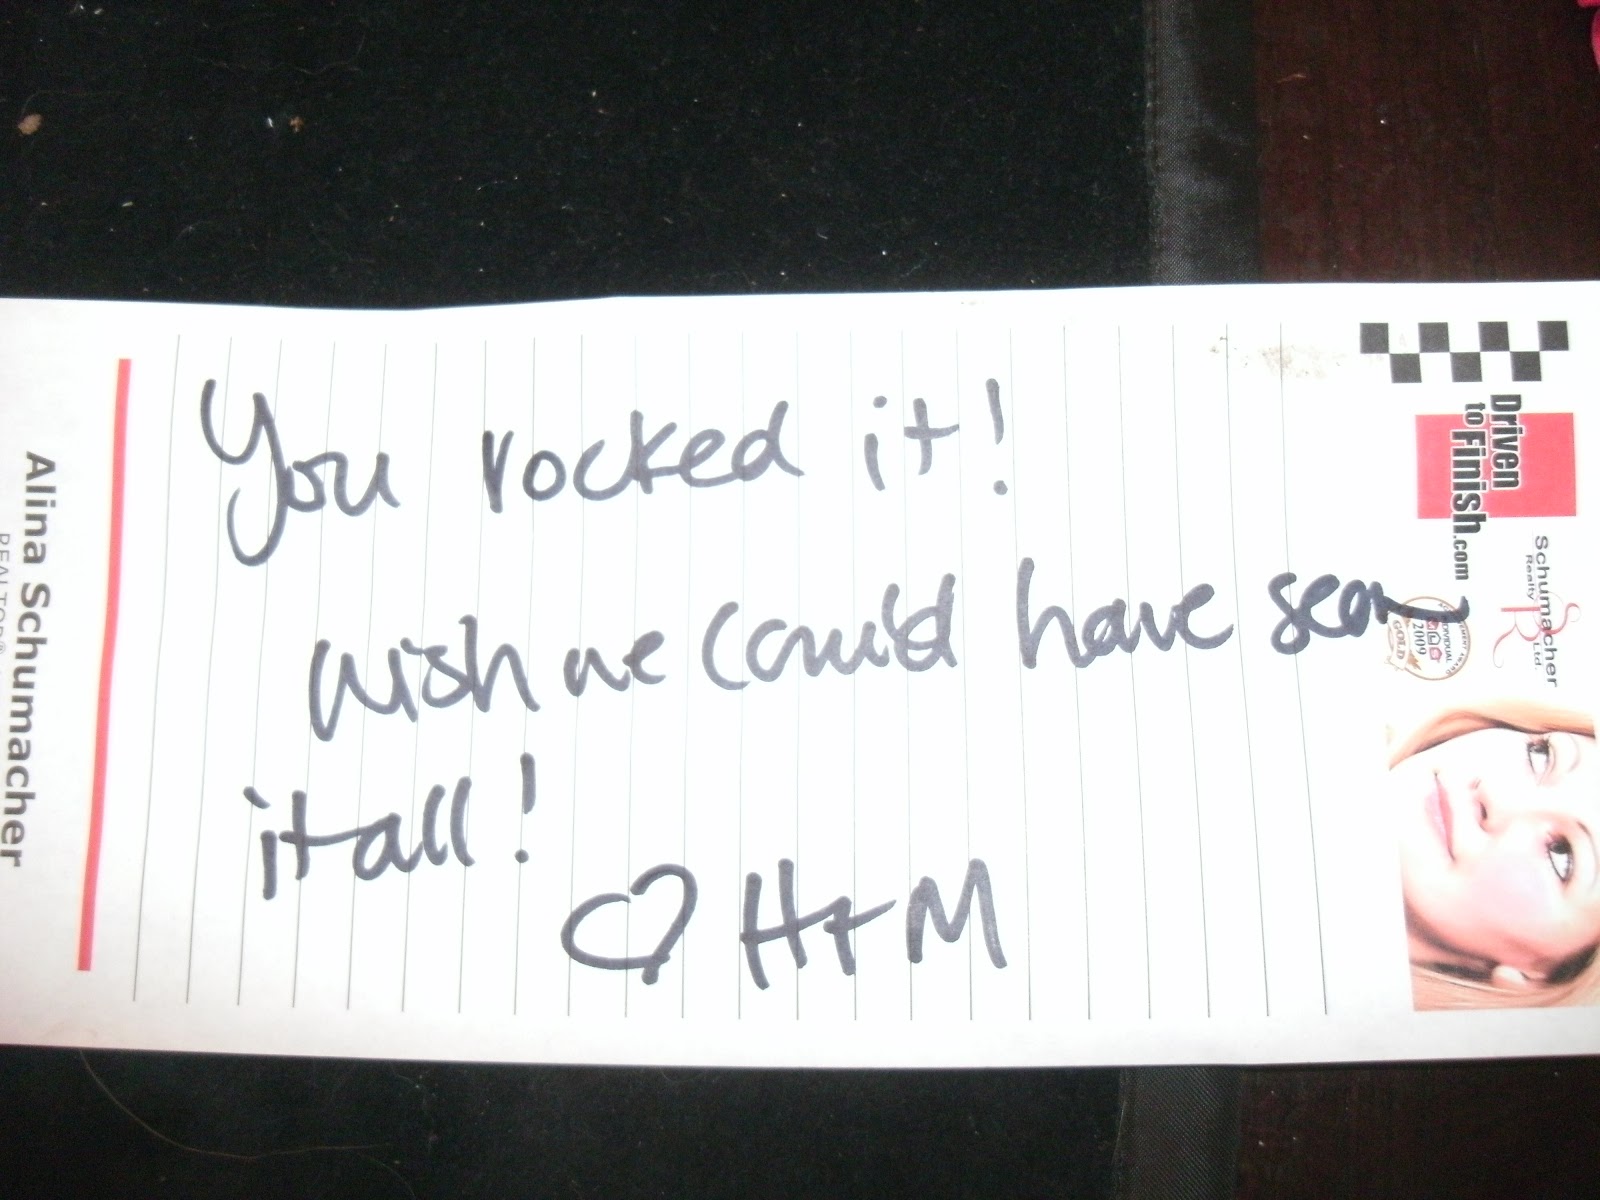 You rocked it!
wish we could have seen
it all!
♡ H+M
Driven
to Finish.com
Schumacher
Realty Ltd
INDIVIDUAL
2009
GOLD
Alina Schumacher
REALTOR®